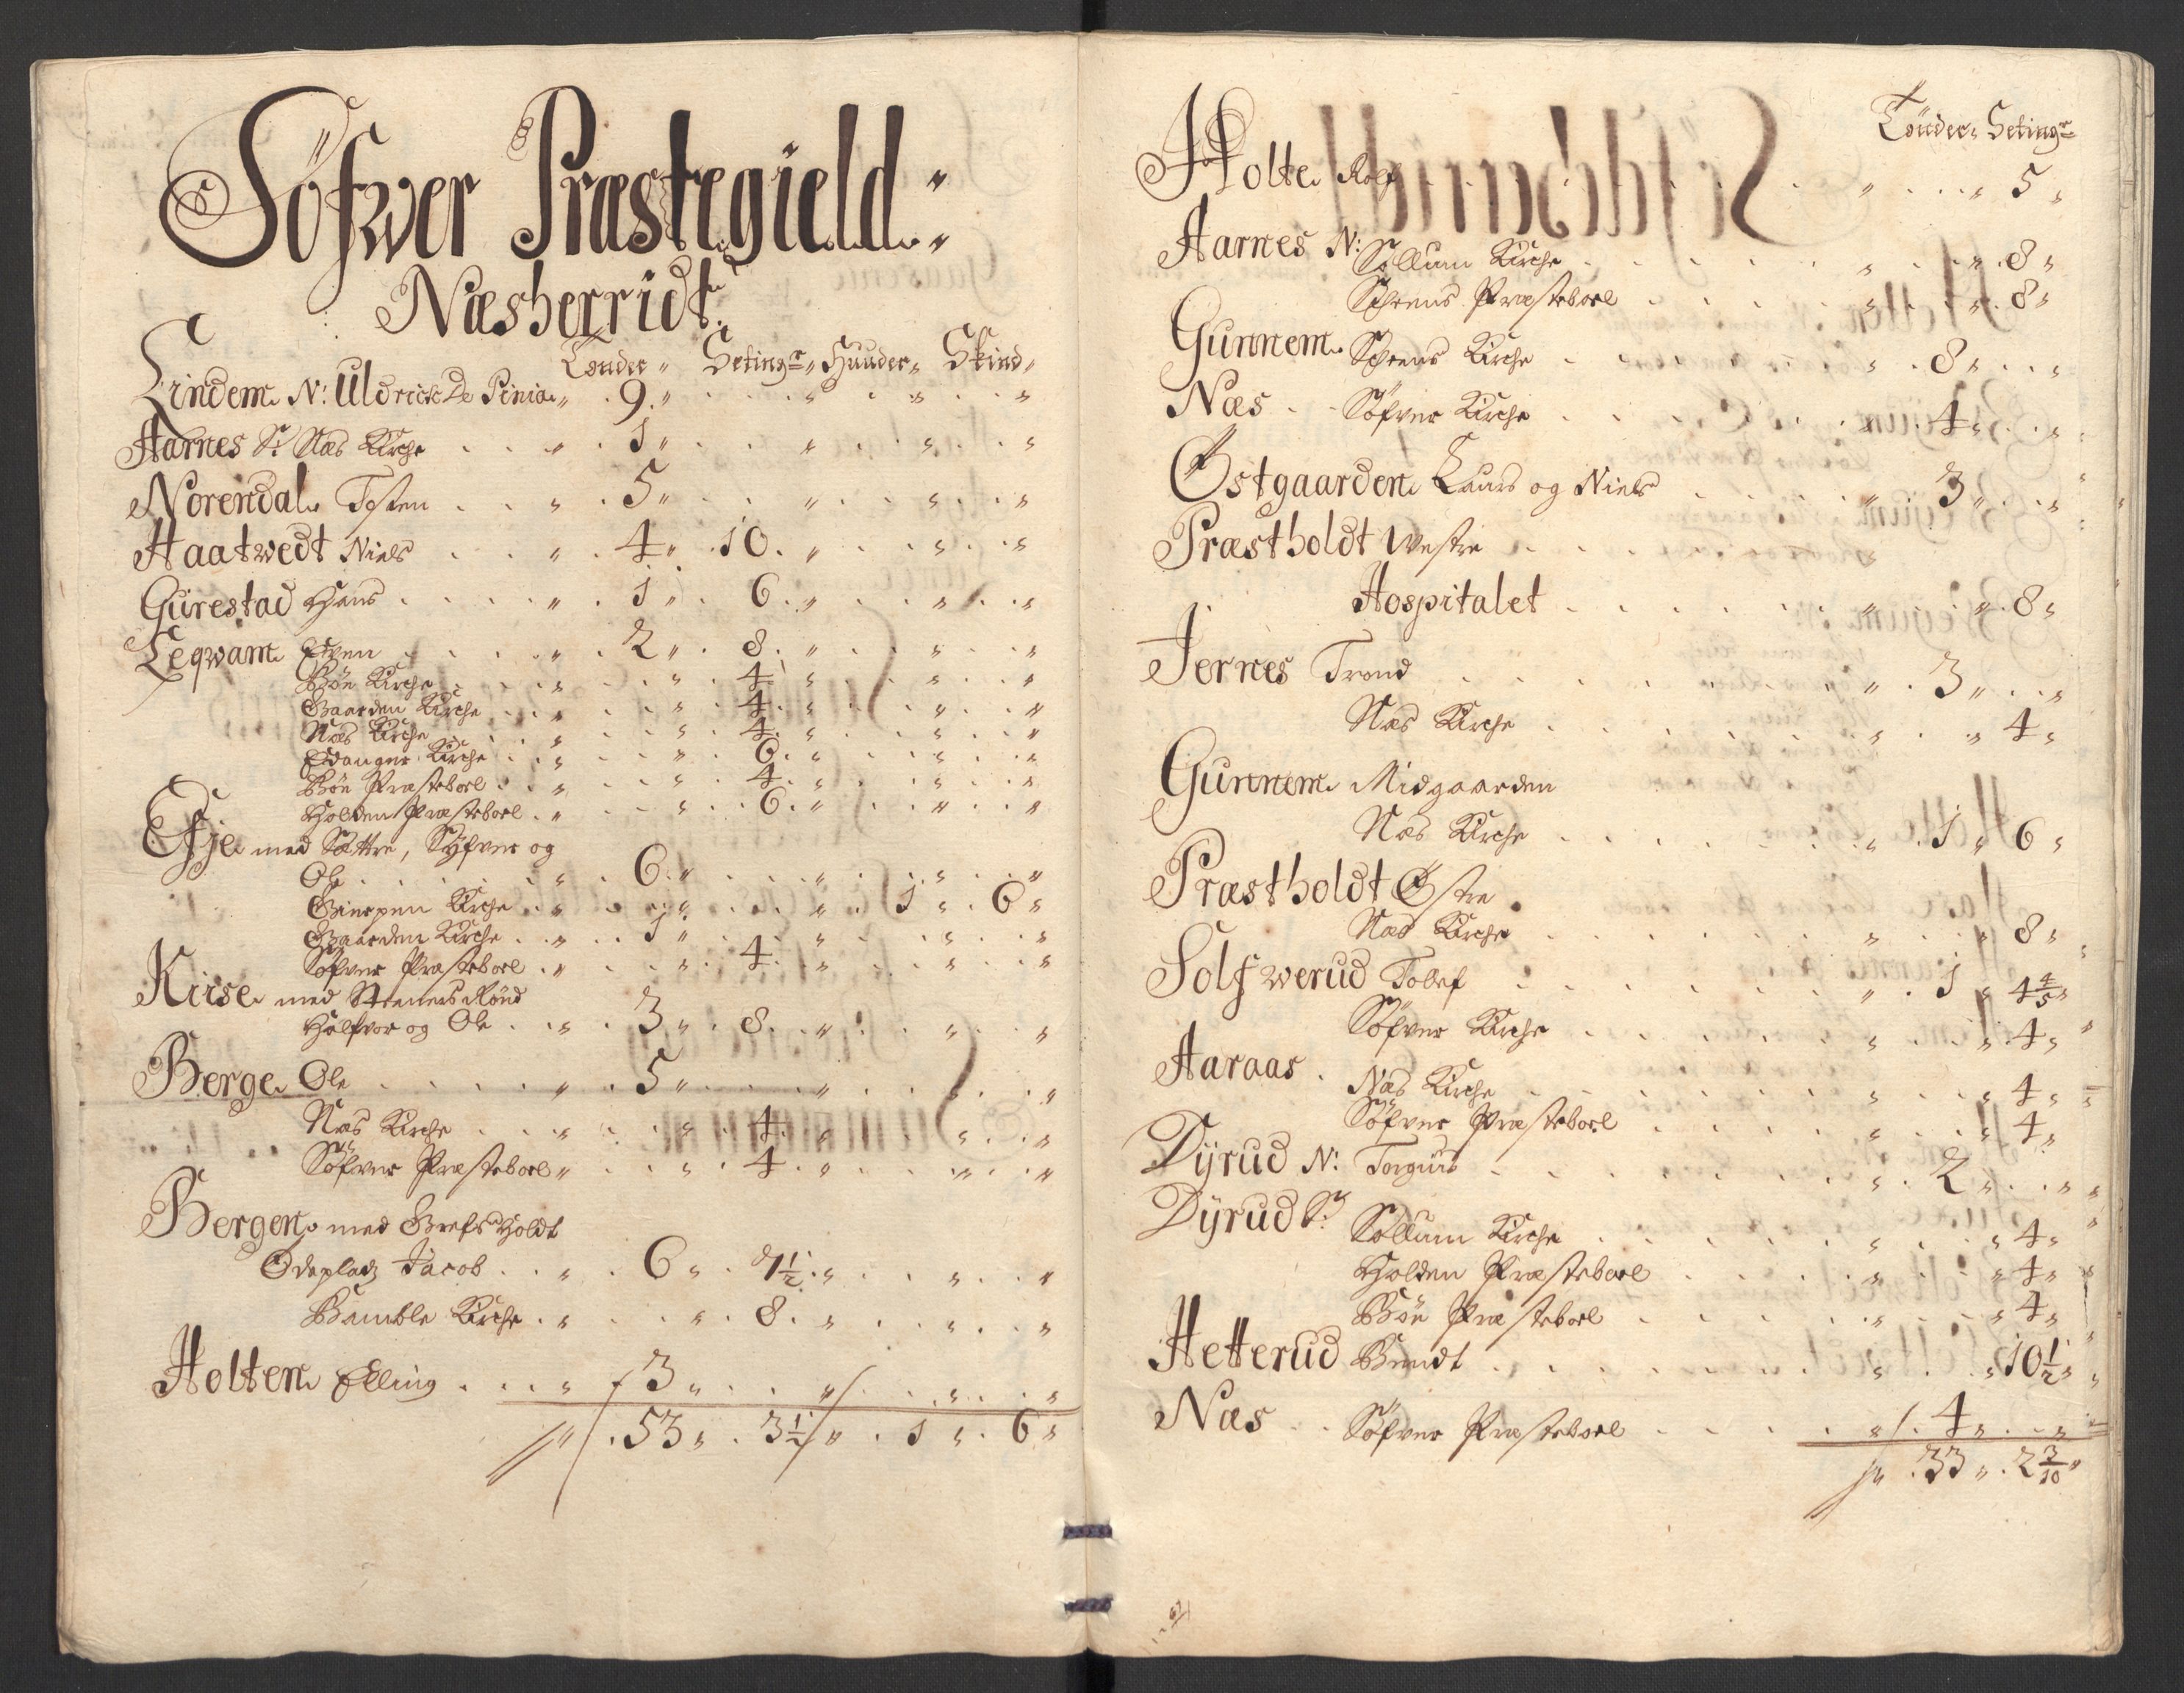 Söfwer Præstegield:
Næsherridt
Tønder Setingr Huuder Skind
Lindem N: Uldrick De Pinia 9
Aarnes S: Næs Kirche 1
Norendal Tosten 5
Haatwedt Niels 4 10
Gurestad Hans 1 6
Leqwam Even 2 8
Böe Kirche 4
Gaarden Kirche 4
Næs Kirche 4
Edanger Kirche 6
Böe Præsteboel 4
Holden Præsteboel 6
Efje med Sættre, Söfver og
Ole 6
Gierpen Kirche 1 6
Gaarden Kirche 1
Söfver Præsteboel 4
Kiise med
Halfvor og Ole 3 8
Berge Ole 5
Næs Kirche 4
Söfver Præsteboel 4
Bergen med Grefsholdt
Ödepladz Jacob 6 7½
Bamble Kirche 8
Holten Elling 3
53 3½ 1 6
Tønder Setingr
Holte Rolf 5
Aarnes N: Sollum Kirche 8
Schrens Præsteboel 8
Gunnem Schrens Kirche 8
Næs Söfver Kirche 4
Østgaarden Laurs og Niels 3
Præstholdt Westre
Hospitalet 8
Jernes Trond 3
Næs Kirche 4
Gunnem Midgaarden
Næs Kirche 1 6
Præstholdt Østre
Næs Kirche 8
Solfwerud Tollef 1 4 4/5
Söfver Kirche 4
Aaraas Næs Kirche 4
Söfver Præsteboel 4
Dÿrud N: Torguis 2
Dÿrud S: Sollum Kirche 4
Holden Præsteboel 4
Böe Præsteboel 4
Hetterud Bendt 10½
Næs Söfver Præsteboel 4
33 2 3/10